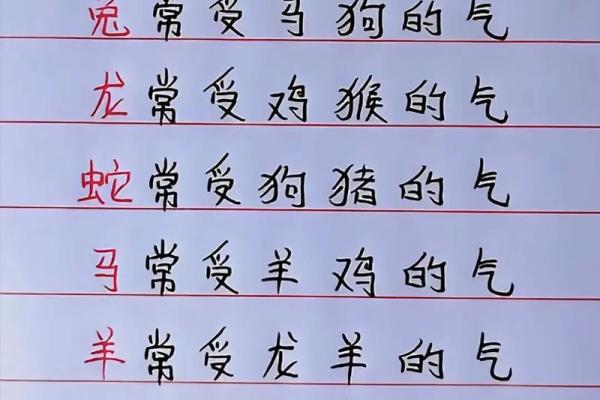 兔常受马狗的气
龙常受鸡猴的气
蛇常受狗猪的气
马常受羊鸡的气
羊常受龙羊的气